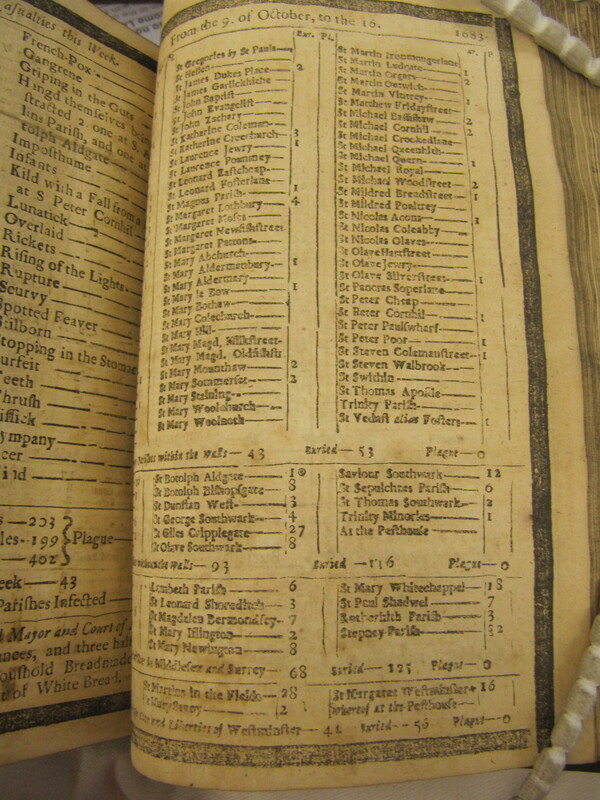 asualties this Week.
French-Pox
Gangrene
Griping in the Guts
Hangd themselves
stracted 2 one at S.
lins Parish, and one at
tolph Aldgate
Imposthume
Infants
Kild with a Fall from a
at S Peter Cornhil
Lunatick
Overlaid
Rickets
Rising of the Lights
Rupture
Scurvy
Spotted Feaver
Stilborn
topping in the Stomac
urfeit
eeth
hrush
iffick
ympany
cer
ind
s — 203
les — 199 Plague
— 402
eek — 43
Parishes Infected
Mayor and Court of
nces, and three half
oushold Bread made
t of White Bread.
From the 9. of October, to the 16. 1683
Bur. Pl.
St Gregories by St Pauls
St Hellen 2
St James Dukes Place
St James Garlickhithe
St John Baptist
St John Evangelist
St John Zachary
St Katharine Coleman
St Katharine Creechurch 3
St Laurence Jewry 1
St Laurence Pountney
St Leonard Eastcheap
St Leonard Fosterlane 1
St Magnus Parish 4
St Margaret Lothbury
St Margaret Moses
St Margaret Newfishstreet
St Margaret Pattons
St Mary Abchurch
St Mary Aldermanbury 1
St Mary Aldermery
St Mary le Bow 1
St Mary Bothaw
St Mary Colechurch
St Mary Hill
St Mary Magd. Milkstreet
St Mary Magd. Oldfishstr
St Mary Mounthaw 2
St Mary Sommerset 2
St Mary Staining
St Mary Woolchurch
St Mary Woolnoth
St Martin Ironmongerlane
St Martin Ludgate
St Martin Orgars 2
St Martin Outwich
St Martin Vintrey 1
St Matthew Fridaystreet
St Michael Bassishaw 2
St Michael Cornhil 2
St Michael Crookedlane
St Michael Queenhith
St Michael Quern 1
St Michael Royal
St Michael Woodstreet 2
St Mildred Breadstreet 1
St Mildred Poultrey
St Nicolas Acons 1
St Nicolas Coleabby
St Nicolas Olaves
St Olave Hartstreet
St Olave Jewry
St Olave Silverstreet 1
St Pancras Soperlane
St Peter Cheap
St Peter Cornhil 1
St Peter Paulswharf
St Peter Poor 1
St Steven Colemanstreet 1
St Steven Walbrook
St Swithin
St Thomas Apostle
Trinity Parish
St Vedast alias Fosters 1
Parishes within the Walls — 43 Buried — 53 Plague — 0
St Botolph Aldgate 10
St Botolph Bishopsgate 8
St Dunstan West 3
St George Southwark 4
St Giles Cripplegate 27
St Olave Southwark 8
Saviour Southwark 12
St Sepulchres Parish 6
St Thomas Southwark 2
Trinity Minories 1
At the Pesthouse
without the Walls — 93 Buried — 116 Plague — 0
Lambeth Parish 6
St Leonard Shoreditch 3
St Magdalen Bermondsey 7
St Mary Islington 2
St Mary Newington 8
St Mary Whitechappel 18
St Paul Shadwel 7
Rotherhith Parish 3
Stepney Parish 32
in Middlesex and Surrey — 68 Buried — 123 Plague — 0
St Martins in the Fields 28
St Mary Savoy 2
St Margaret Westminster 16
Whereof at the Pesthouse
City and Liberties of Westminster — 42 Buried — 56 Plague — 0